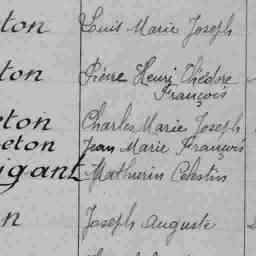 ton Louis Marie Joseph
ton Pierre Henri Théodore
François
eton Charles Marie Joseph
eton Jean Marie François
igant Mathurin Celestin
n Joseph Auguste